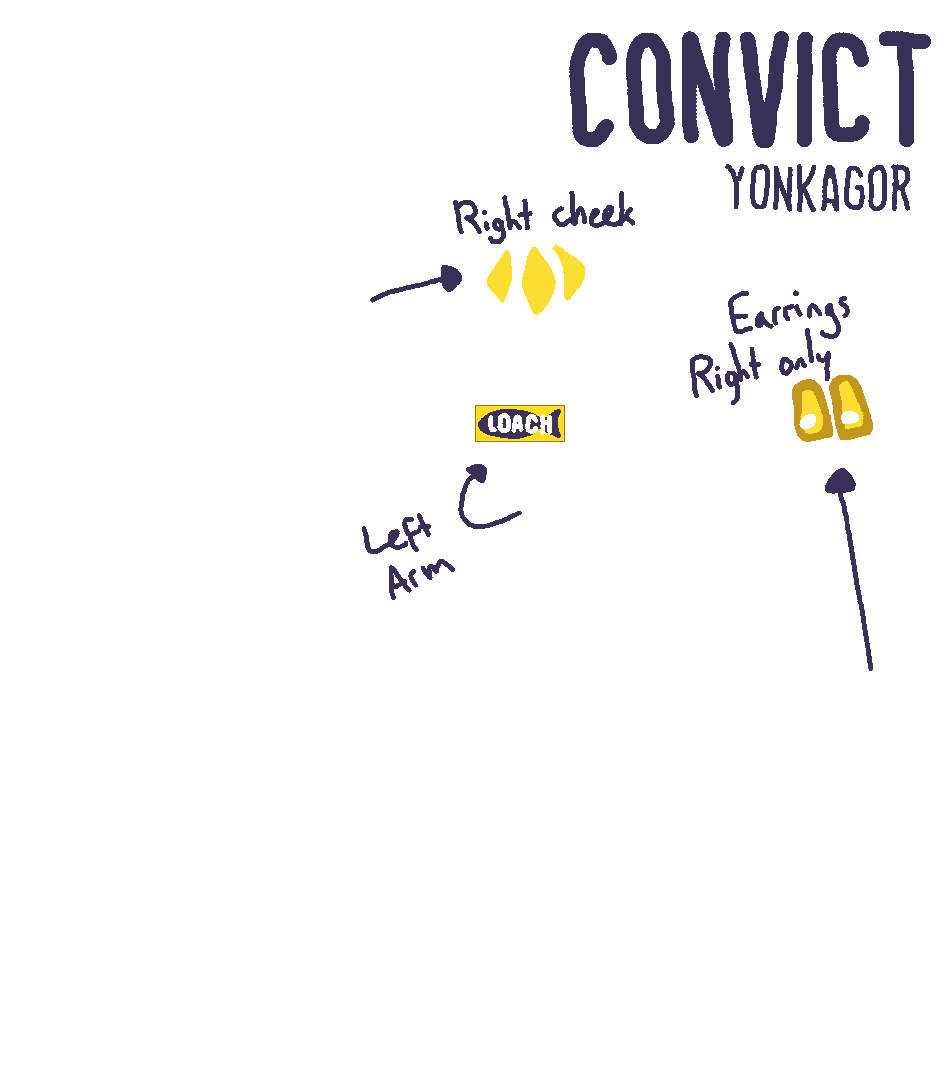 CONVICT
YONKAGOR
Right cheek
Earrings
Right only
LOACH
Left
Arm